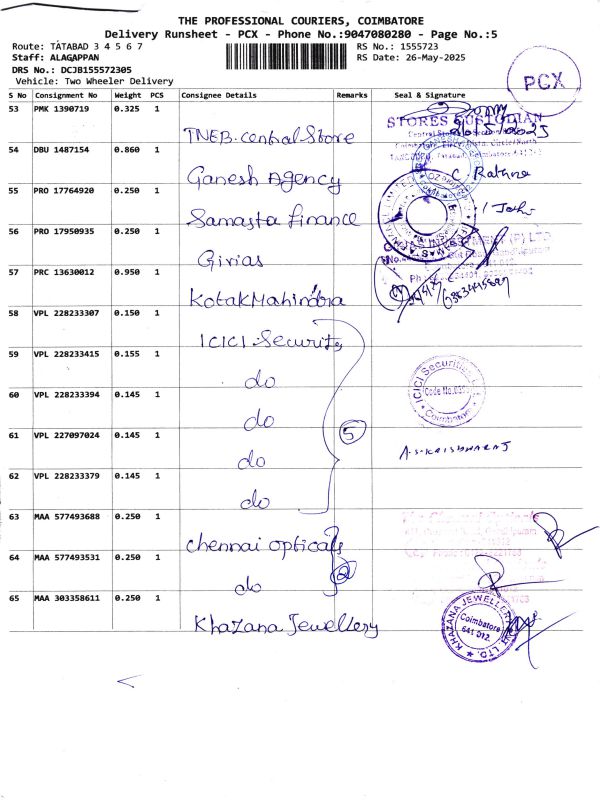 THE PROFESSIONAL COURIERS, COIMBATORE
Delivery Runsheet - PCX - Phone No.:9047080280 - Page No.:5
Route: TATABAD 3 4 5 6 7
RS No.: 1555723
Staff: ALAGAPPAN
RS Date: 26-May-2025
DRS No.: DCJB155572305
Vehicle: Two Wheeler Delivery
PCX
S No Consignment No Weight PCS Consignee Details Remarks Seal & Signature
53 PMK 1390719 0.325 1 TNEB. Central Store
STORES CUSTODIAN
54 DBU 1487154 0.860 1 Ganesh Agency
C. Rathna
55 PRO 17764920 0.250 1 Samasta finance
56 PRO 17950935 0.250 1 Girias
57 PRC 13630012 0.950 1 Kotak Mahindra
58 VPL 228233307 0.150 1 ICICI Security
59 VPL 228233415 0.155 1 do
ICICI Securities
Coimbatore
60 VPL 228233394 0.145 1 do
61 VPL 227097024 0.145 1 do 5
62 VPL 228233379 0.145 1 do
63 MAA 577493688 0.250 1 chennai opticals
64 MAA 577493531 0.250 1 do 2
65 MAA 303358611 0.250 1 Khazana Jewellery
KHAZANA JEWELLERY PVT. LTD.
Coimbatore
641 012